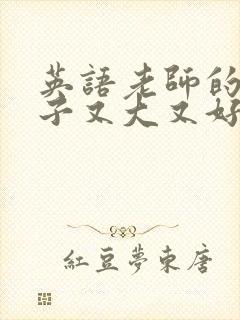 英語老師的
子又大又好
紅豆夢東唐